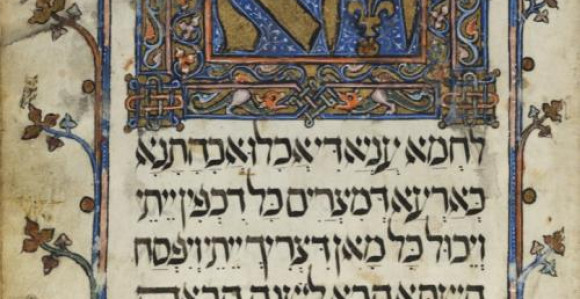 לחמא עניא די אכלו אבהתנא
בארעא דמצרים כל דכפין ייתי
ויכול כל מאן דצריך ייתי ויפסח
השתא הכא לישנה הבאה